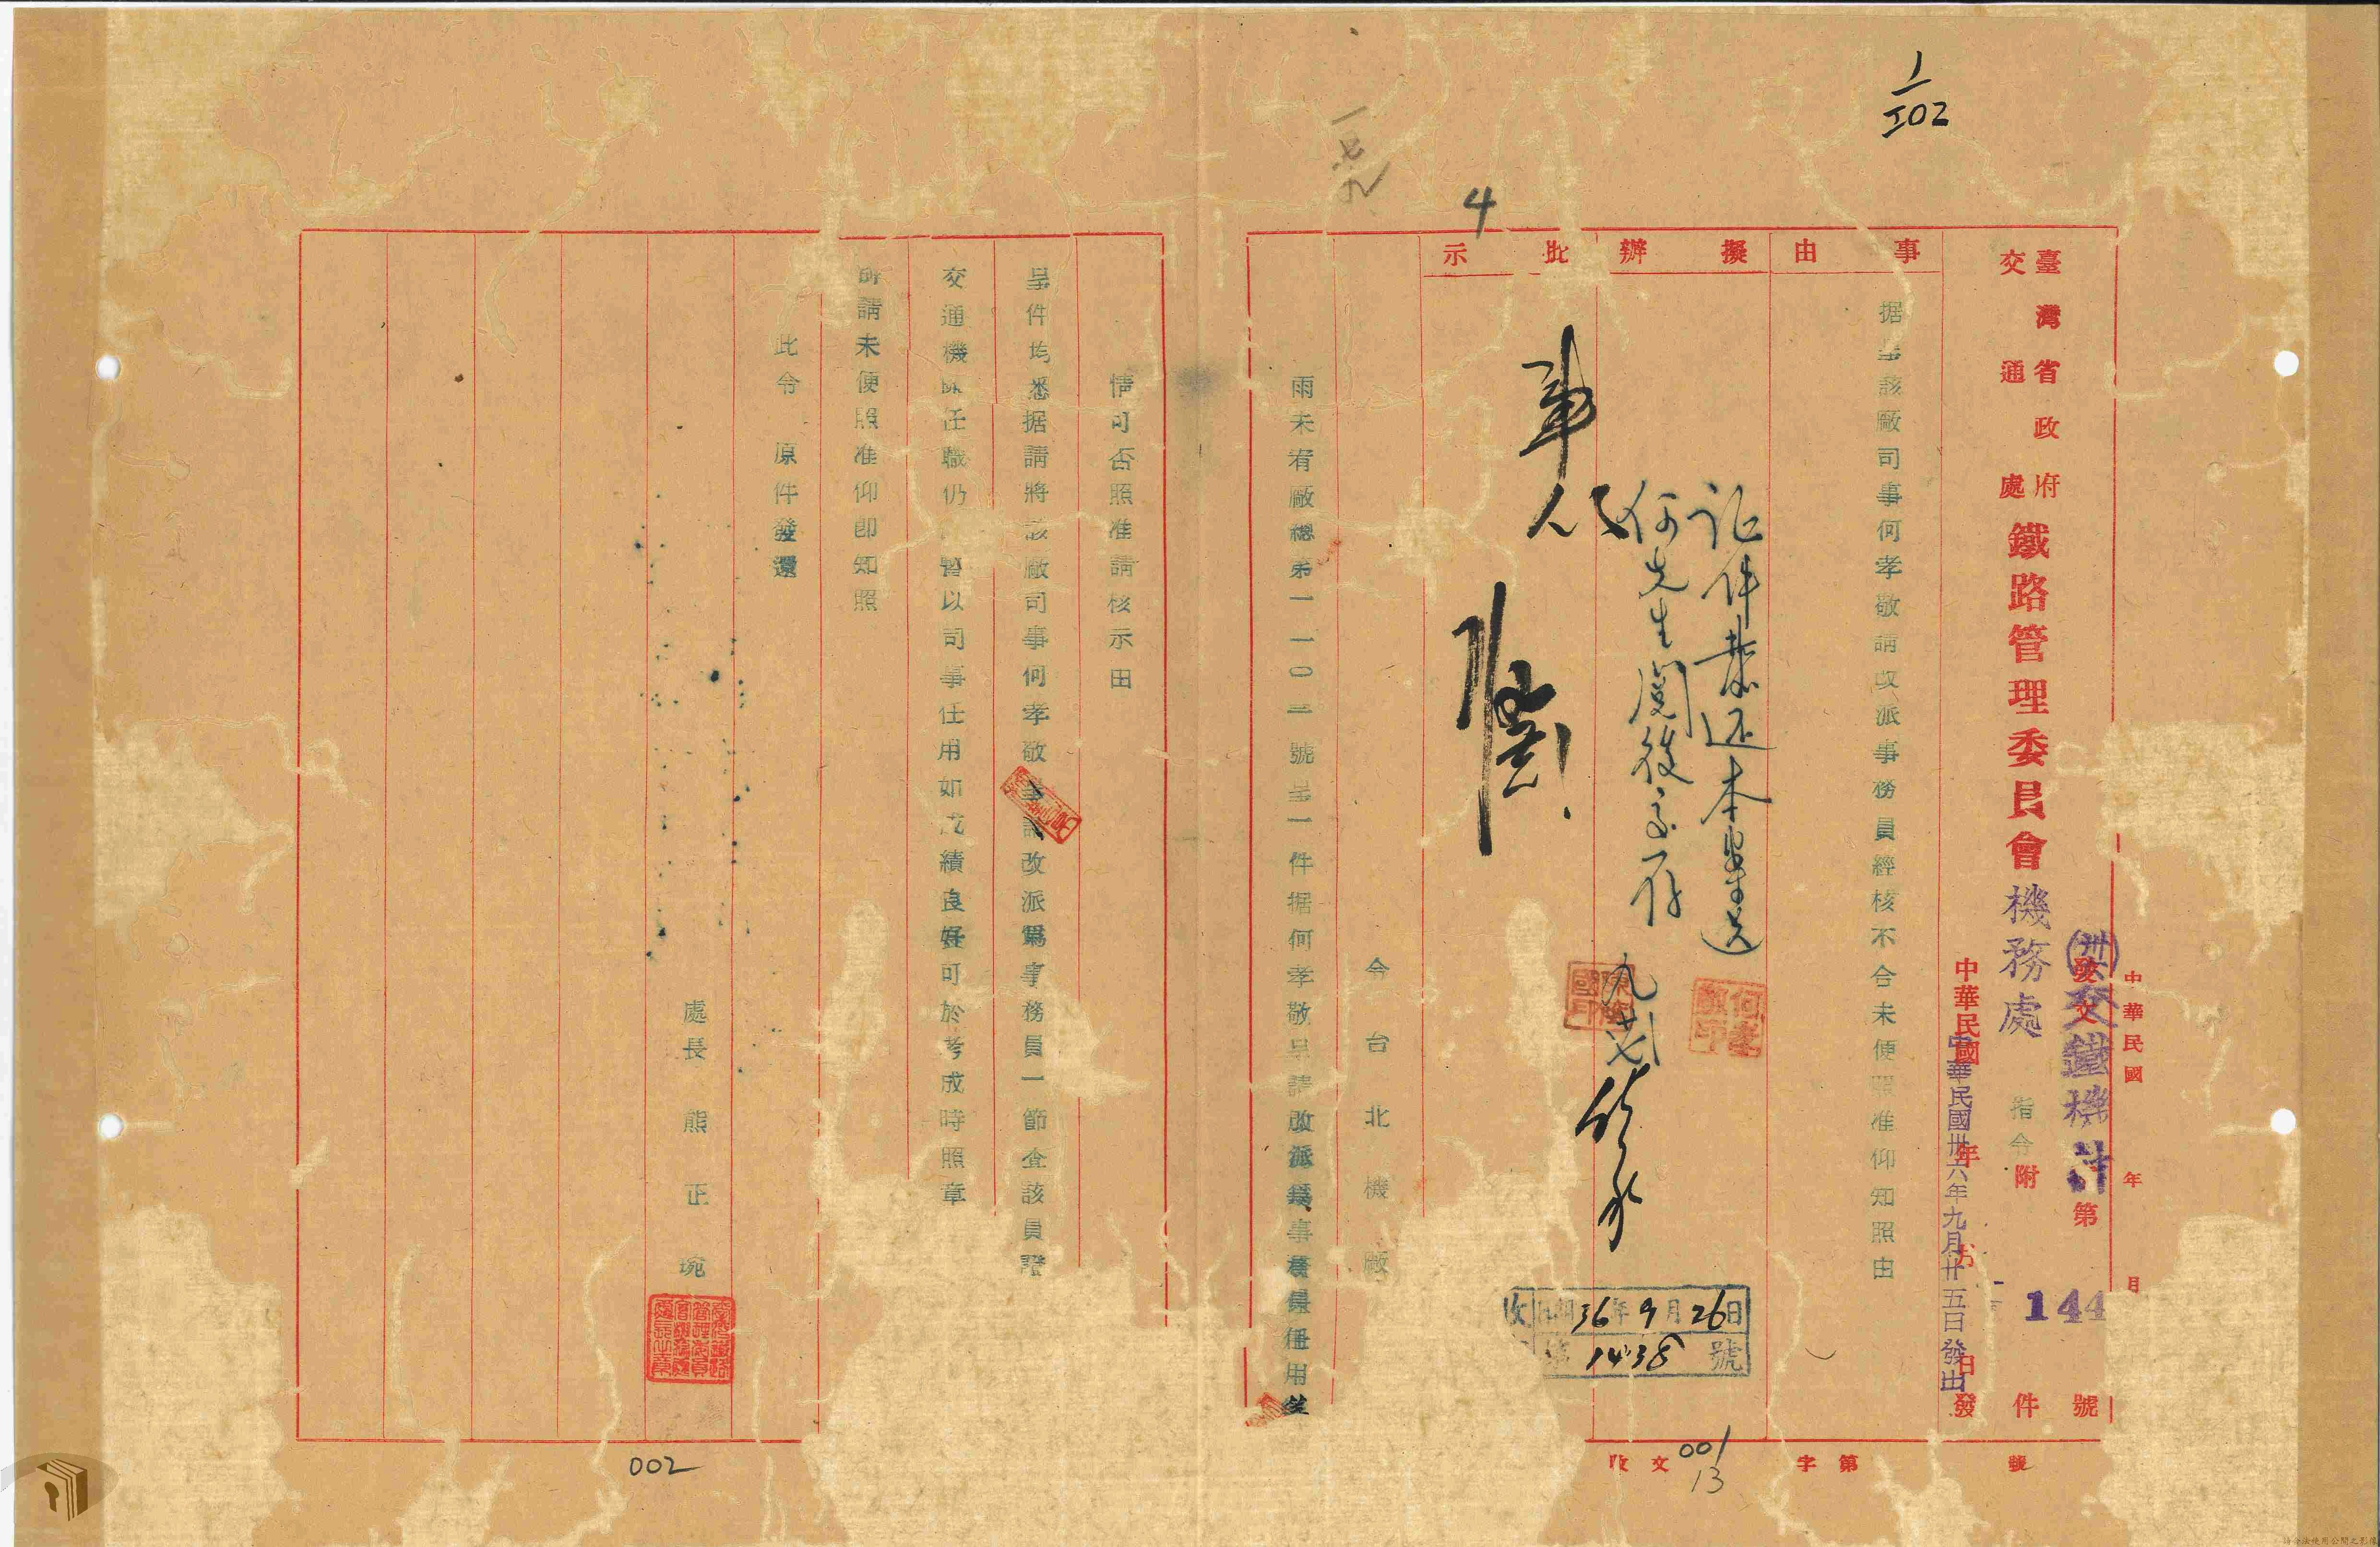 1/502
一七九
4
中華民國 年 月
(卅六)發文交鐵機廿第144號
臺灣省政府
交通處
鐵路管理委員會機務處指令 附件
中華民國 年 月 日發
中華民國卅六年九月廿五日發出
事由
据呈該廠司事何孝敬請改派事務員經核不合未便照准仰知照由
擬辦
证件恭还本案送
何先生閱後交存
九廿六
何孝敬印
批示
收 民國36年9月26日
第1438號
收文 字第 號
001
13
令台北機廠
雨未宥廠總第一一〇二號呈一件据何孝敬呈請改派為事務員任用簽
情可否照准請核示由
呈件均悉据請將該廠司事何孝敬呈請改派為事務員一節查該員證
交通機關任職仍暫以司事任用如成績良好可於考成時照章
所請未便照准仰即知照
此令 原件發還
處長 熊正琬
002